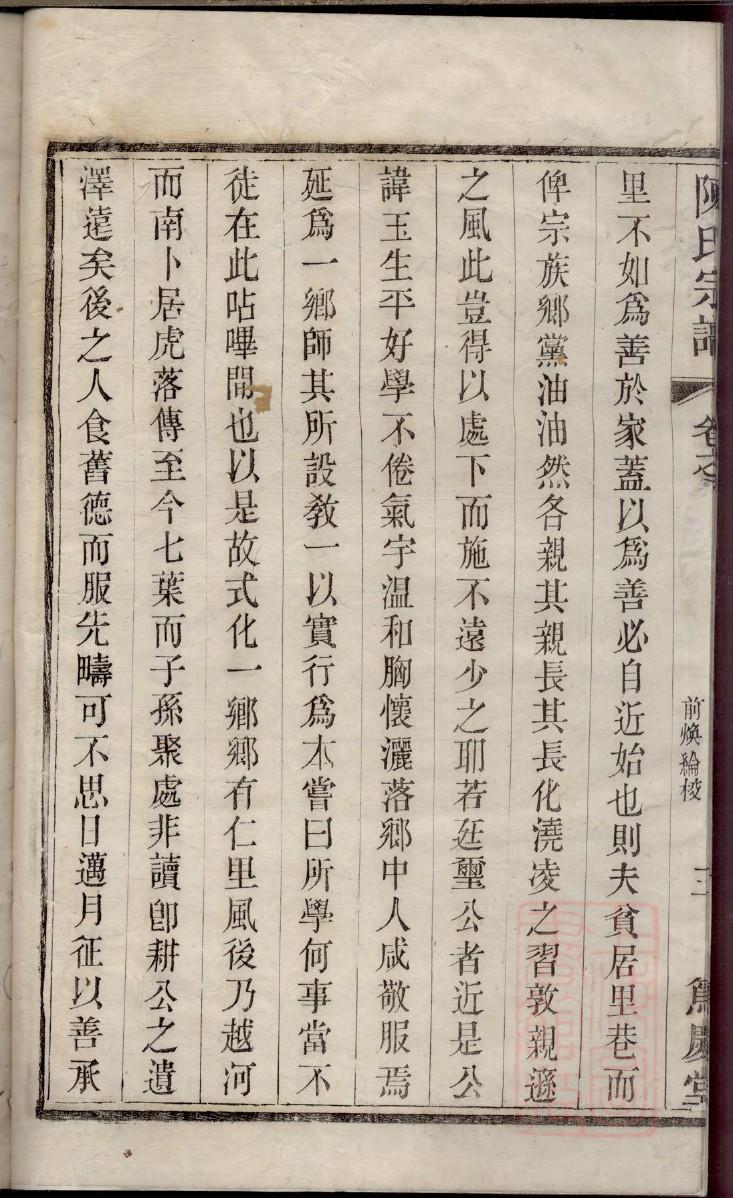 陳氏宗譜
卷之
前煥綸校
三
篤慶堂
里不如爲善於家蓋以爲善必自近始也則夫貧居里巷而
俾宗族鄉黨油油然各親其親長其長化澆凌之習敦親遜
之風此豈得以處下而施不遠少之耶若廷璽公者近是公
諱玉生平好學不倦氣宇溫和胸懷灑落鄉中人咸敬服焉
延爲一鄉師其所設教一以實行爲本嘗曰所學何事當不
徒在此呫嗶間也以是故式化一鄉鄉有仁里風後乃越河
而南卜居虎落傳至今七葉而子孫聚處非讀卽耕公之遺
澤遠矣後之人食舊德而服先疇可不思日邁月征以善承